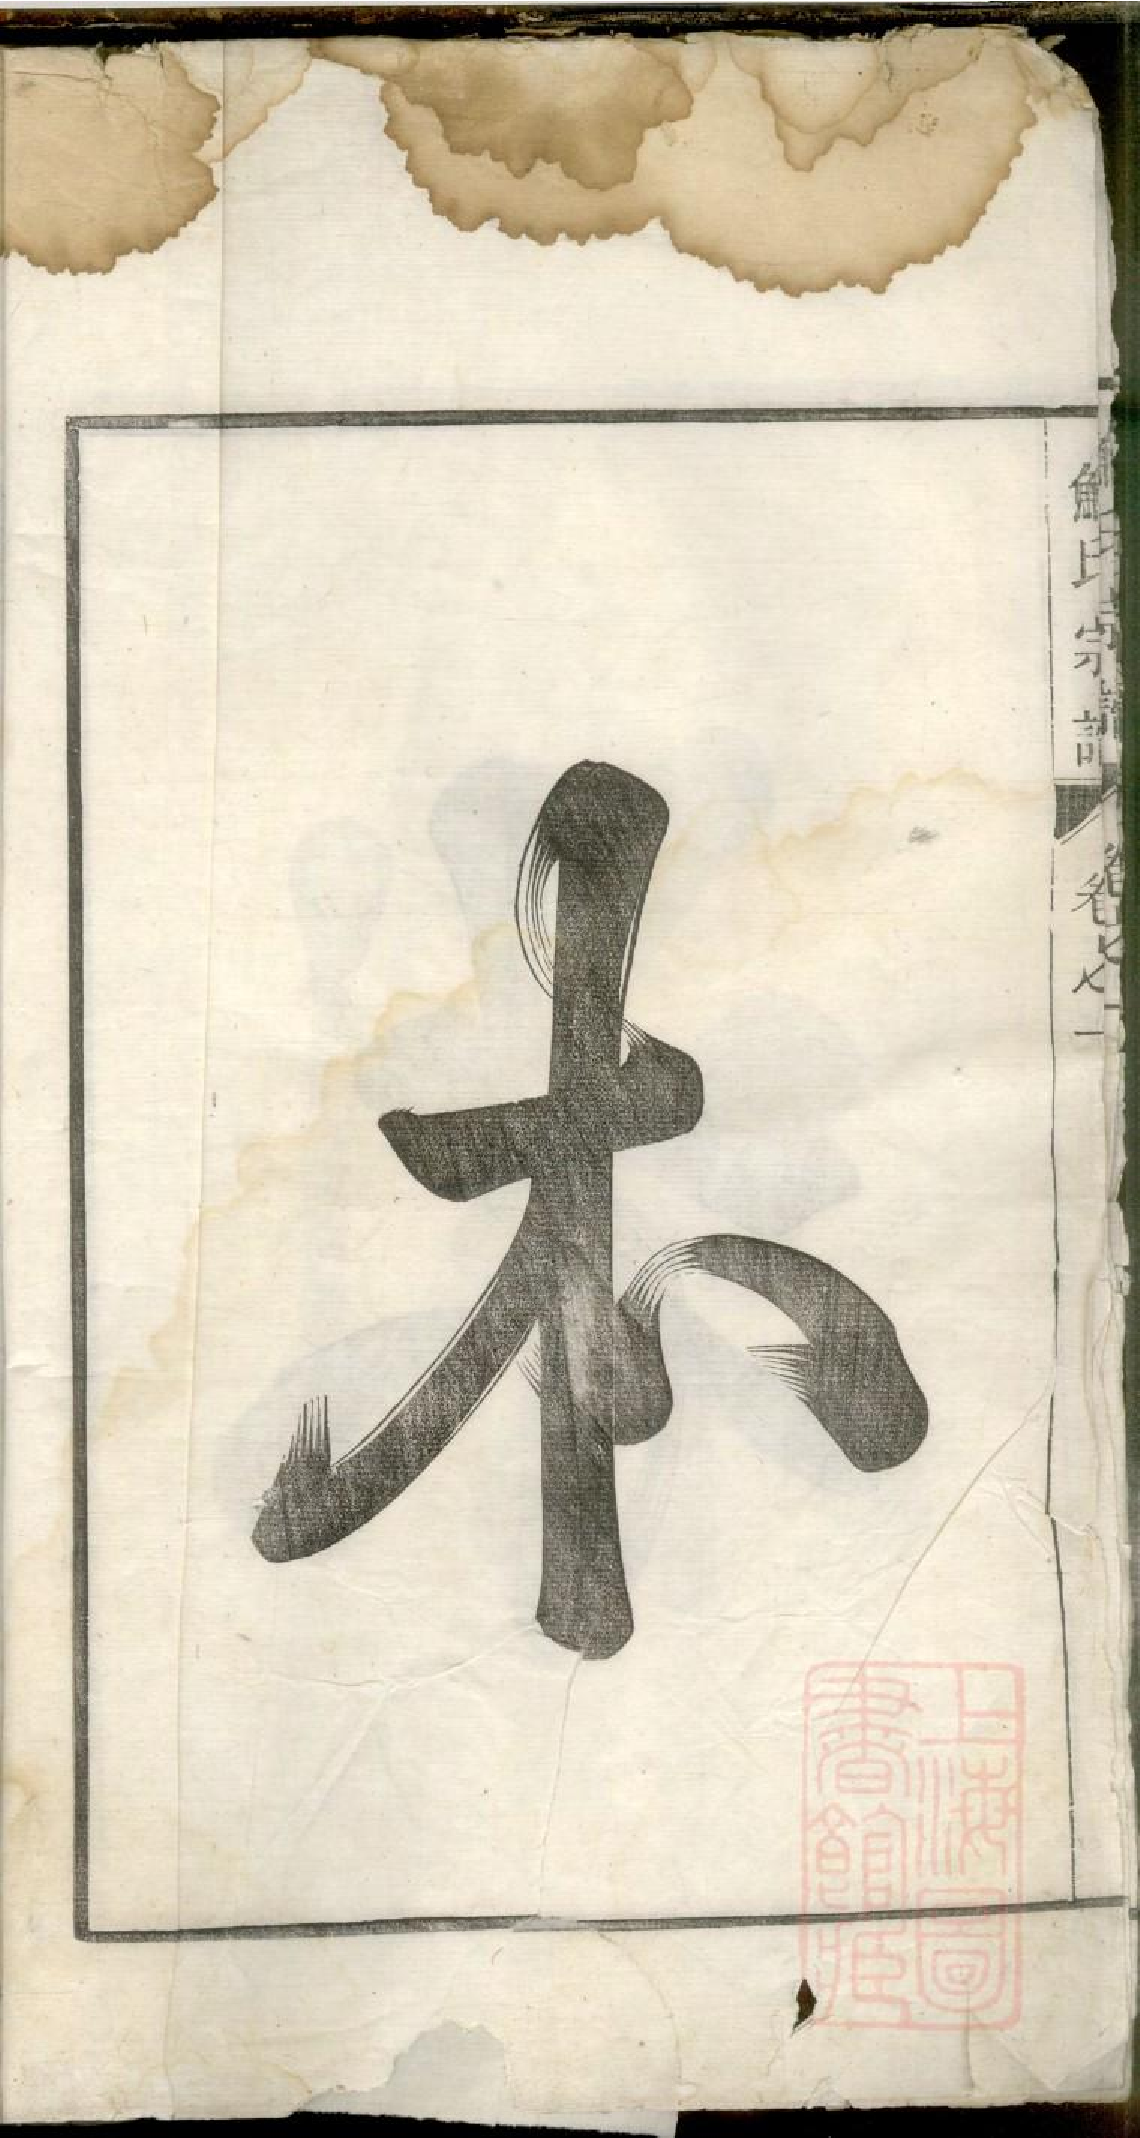 氏宗譜
卷之一
木
上海圖
書館藏